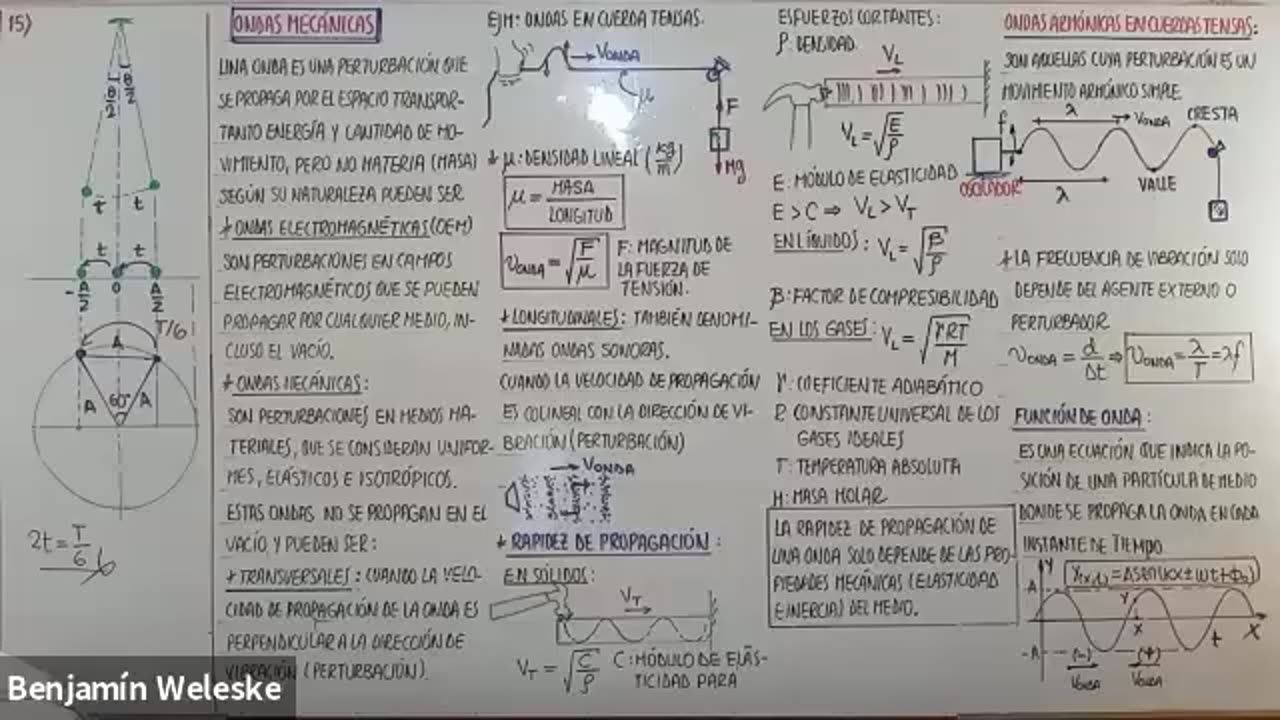 15)
θ/2 θ/2
t t
t t
-A/2 0 A/2
T/6
A
A 60° A
2t = T/6
ONDAS MECÁNICAS
UNA ONDA ES UNA PERTURBACIÓN QUE
SE PROPAGA POR EL ESPACIO TRANSPOR-
TANTO ENERGÍA Y CANTIDAD DE MO-
VIMIENTO, PERO NO MATERIA (MASA)
SEGÚN SU NATURALEZA PUEDEN SER
+ ONDAS ELECTROMAGNÉTICAS (OEM)
SON PERTURBACIONES EN CAMPOS
ELECTROMAGNÉTICOS QUE SE PUEDEN
PROPAGAR POR CUALQUIER MEDIO, IN-
CLUSO EL VACÍO.
+ ONDAS MECÁNICAS:
SON PERTURBACIONES EN MEDIOS MA-
TERIALES, QUE SE CONSIDERAN UNIFOR-
MES, ELÁSTICOS E ISOTRÓPICOS.
ESTAS ONDAS NO SE PROPAGAN EN EL
VACÍO Y PUEDEN SER:
+ TRANSVERSALES: CUANDO LA VELO-
CIDAD DE PROPAGACIÓN DE LA ONDA ES
PERPENDICULAR A LA DIRECCIÓN DE
VIBRACIÓN (PERTURBACIÓN).
EJM: ONDAS EN CUERDA TENSAS.
VONDA
μ
F
Mg
+ μ: DENSIDAD LINEAL (kg/m)
μ = MASA/LONGITUD
VONDA = √F/μ F: MAGNITUD DE
LA FUERZA DE
TENSIÓN.
+ LONGITUDINALES: TAMBIÉN DENOMI-
NADAS ONDAS SONORAS.
CUANDO LA VELOCIDAD DE PROPAGACIÓN
ES COLINEAL CON LA DIRECCIÓN DE VI-
BRACIÓN (PERTURBACIÓN)
VONDA
+ RAPIDEZ DE PROPAGACIÓN:
EN SÓLIDOS:
VT
VT = √C/ρ C: MÓDULO DE ELÁS-
TICIDAD PARA
ESFUERZOS CORTANTES:
ρ: DENSIDAD
VL
VL = √E/ρ
E: MÓDULO DE ELASTICIDAD
E > C ⇒ VL > VT
EN LÍQUIDOS: VL = √β/ρ
β: FACTOR DE COMPRESIBILIDAD
EN LOS GASES: VL = √γRT/M
γ: COEFICIENTE ADIABÁTICO
R: CONSTANTE UNIVERSAL DE LOS
GASES IDEALES
T: TEMPERATURA ABSOLUTA
M: MASA MOLAR
LA RAPIDEZ DE PROPAGACIÓN DE
UNA ONDA SOLO DEPENDE DE LAS PRO-
PIEDADES MECÁNICAS (ELASTICIDAD
E INERCIA) DEL MEDIO.
ONDAS ARMÓNICAS EN CUERDAS TENSAS:
SON AQUELLAS CUYA PERTURBACIÓN ES UN
MOVIMIENTO ARMÓNICO SIMPLE
f λ VONDA CRESTA
OSCILADOR λ VALLE
+ LA FRECUENCIA DE VIBRACIÓN SOLO
DEPENDE DEL AGENTE EXTERNO O
PERTURBADOR
VONDA = d/Δt ⇒ VONDA = λ/T = λf
FUNCIÓN DE ONDA:
ES UNA ECUACIÓN QUE INDICA LA PO-
SICIÓN DE UNA PARTÍCULA DE MEDIO
DONDE SE PROPAGA LA ONDA EN CADA
INSTANTE DE TIEMPO
Y Y(x,t) = A sen(kx ± ωt + ϕ0)
A Y
x t X
-A (-) (+)
VONDA VONDA
Benjamín Weleske